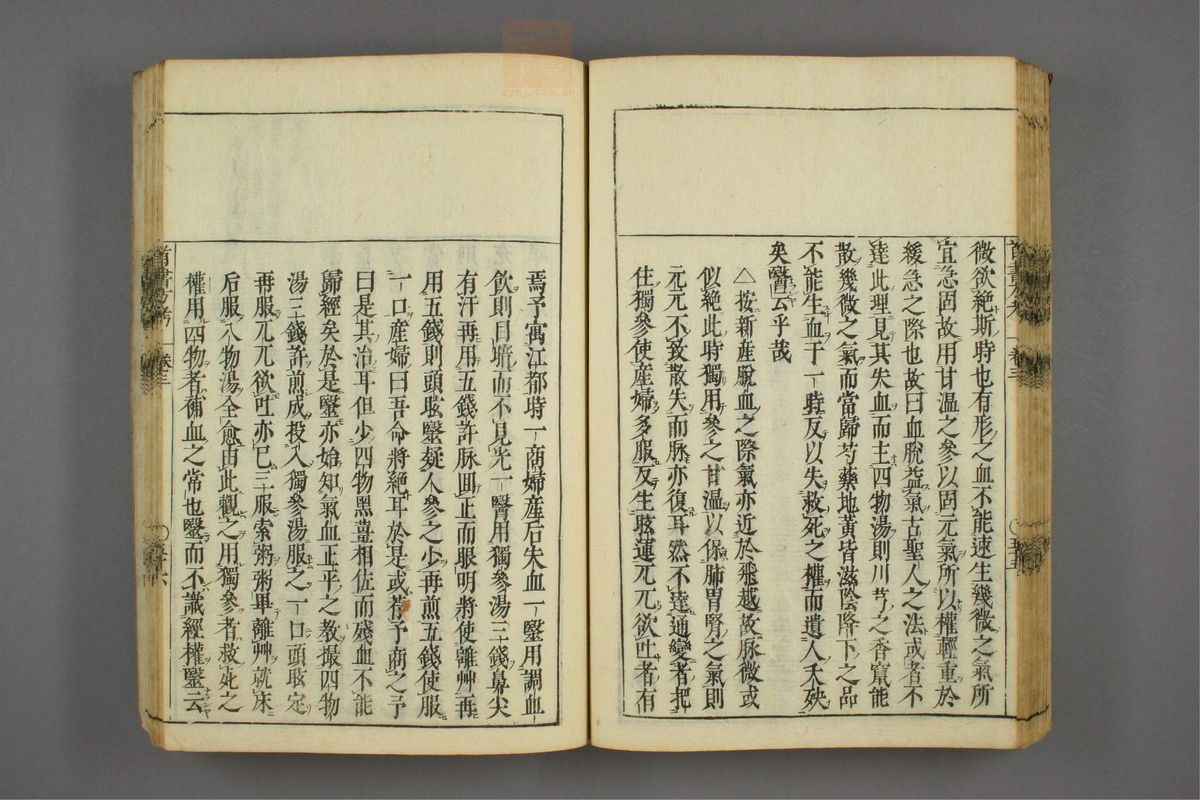 微欲絶斯時也有形之血不能速生幾微之氣所
宜急固故用甘温之參以固元氣所以權輕重於
緩急之際也故曰血脫益氣古聖人之法或者不
達此理見其失血而主四物湯則川芎之香竄能
散幾微之氣而當歸芍藥地黄皆滋陰降下之品
不能生血于一時反以失救死之權而遺人夭殃
矣醫云乎哉
△按新産脫血之際氣亦近於飛越故脉微或
似絶此時獨用參之甘温以保肺胃腎之氣則
元元不致散失而脉亦復耳然不達通變者把
住獨參使産婦多服反生眩運兀兀欲吐者有
焉予寓江都時一商婦産后失血一醫用調血
飲則目暗而不見光一醫用獨參湯三錢鼻尖
有汗再用五錢許脉回正而眼明將使離艸再
用五錢則頭眩醫疑人參之少再煎五錢使服
一口産婦曰吾命將絶耳於是或荐予商之予
曰是其治耳但少四物黑薑相佐而殘血不能
歸經矣於是醫亦始知氣血正平之教撮四物
湯三錢許煎成投入獨參湯服之一口頭眩定
再服兀兀欲吐亦已三服索粥粥畢離艸就床
后服八物湯全愈由此觀之用獨參者救死之
權用四物者補血之常也醫而不識經權醫云